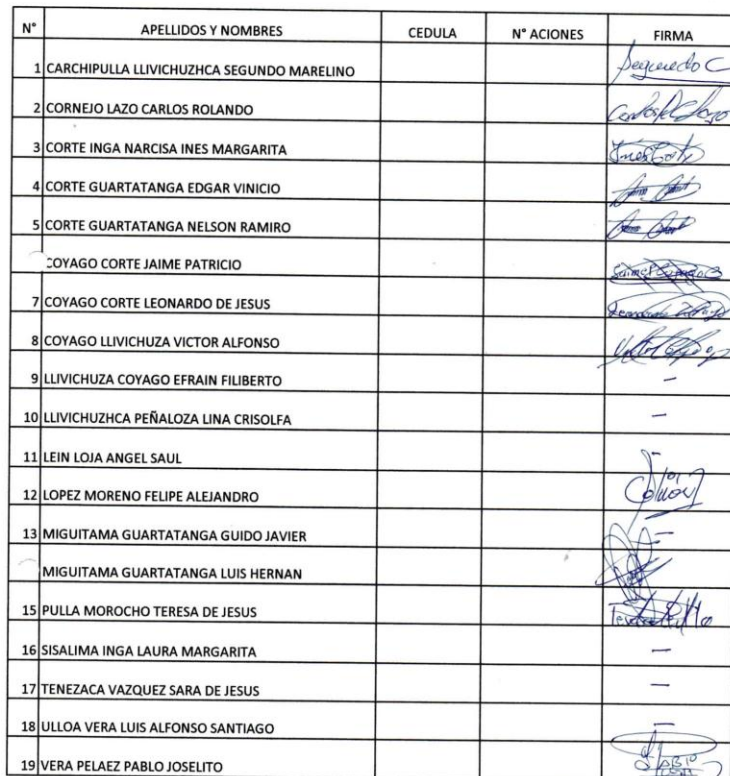 N° APELLIDOS Y NOMBRES CEDULA N° ACIONES FIRMA
1 CARCHIPULLA LLIVICHUZHCA SEGUNDO MARELINO Segundo C
2 CORNEJO LAZO CARLOS ROLANDO
3 CORTE INGA NARCISA INES MARGARITA
4 CORTE GUARTATANGA EDGAR VINICIO
5 CORTE GUARTATANGA NELSON RAMIRO
COYAGO CORTE JAIME PATRICIO
7 COYAGO CORTE LEONARDO DE JESUS
8 COYAGO LLIVICHUZA VICTOR ALFONSO
9 LLIVICHUZA COYAGO EFRAIN FILIBERTO —
10 LLIVICHUZHCA PEÑALOZA LINA CRISOLFA —
11 LEIN LOJA ANGEL SAUL —
12 LOPEZ MORENO FELIPE ALEJANDRO
13 MIGUITAMA GUARTATANGA GUIDO JAVIER —
MIGUITAMA GUARTATANGA LUIS HERNAN
15 PULLA MOROCHO TERESA DE JESUS
16 SISALIMA INGA LAURA MARGARITA —
17 TENEZACA VAZQUEZ SARA DE JESUS —
18 ULLOA VERA LUIS ALFONSO SANTIAGO —
19 VERA PELAEZ PABLO JOSELITO